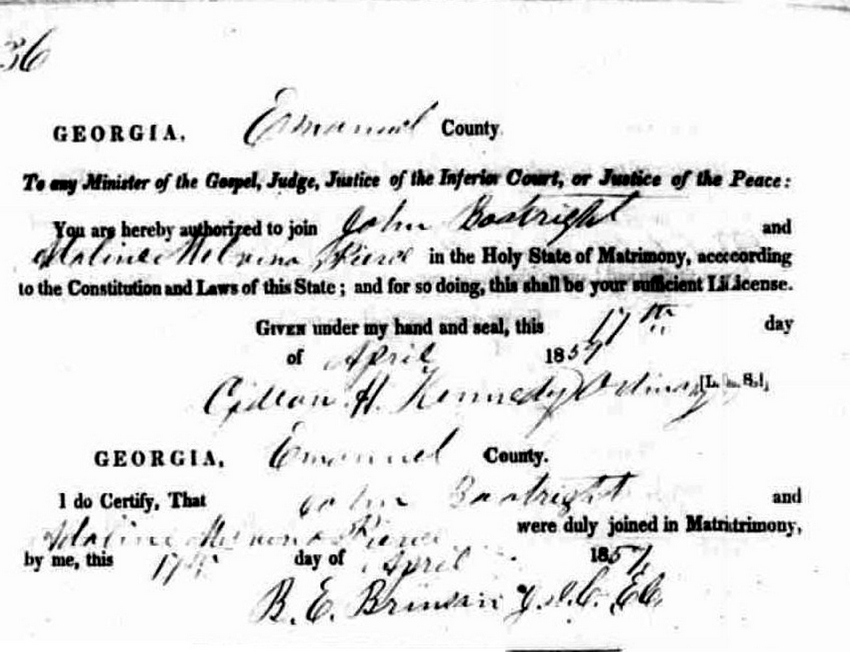 36
GEORGIA, Emanuel County
To any Minister of the Gospel, Judge, Justice of the Inferior Court, or Justice of the Peace:
You are hereby authorized to join John Boatright and
Adaline Melvina Pierce in the Holy State of Matrimony, acccording
to the Constitution and Laws of this State; and for so doing, this shall be your sufficient License.
GIVEN under my hand and seal, this 17th day
of April 1857
Gideon H. Kennedy Ordinary [L. S.]
GEORGIA, Emanuel County.
I do Certify, That John Boatright and
Adaline Melvina Pierce were duly joined in Matrimony,
by me, this 17th day of April 1857
B. E. Brinson J. I. C. E. C.